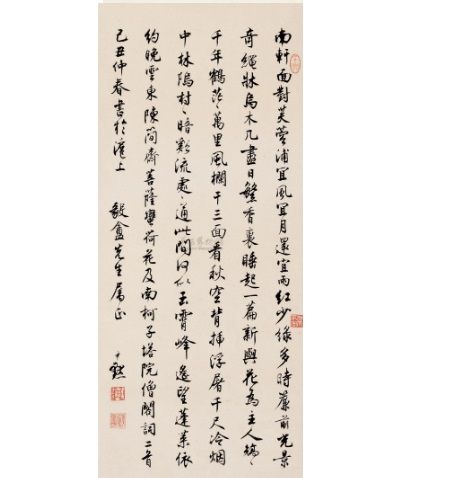 南軒面對芙蓉浦宜風宜月還宜雨紅少綠多時簾前光景
奇繩牀烏木几盡日繁香裏睡起一篇新與花為主人縞縞
千年鶴茫茫萬里風欄干三面看秋空背插浮屠千尺冷煙
中林塢村村暗溪流處處通此間何似玉霄峰遙望蓬萊依
約晚雲東陳簡齋菩薩蠻荷花及南柯子塔院僧閣詞二首
己丑仲春書於滬上 毅盦先生屬正 尹默